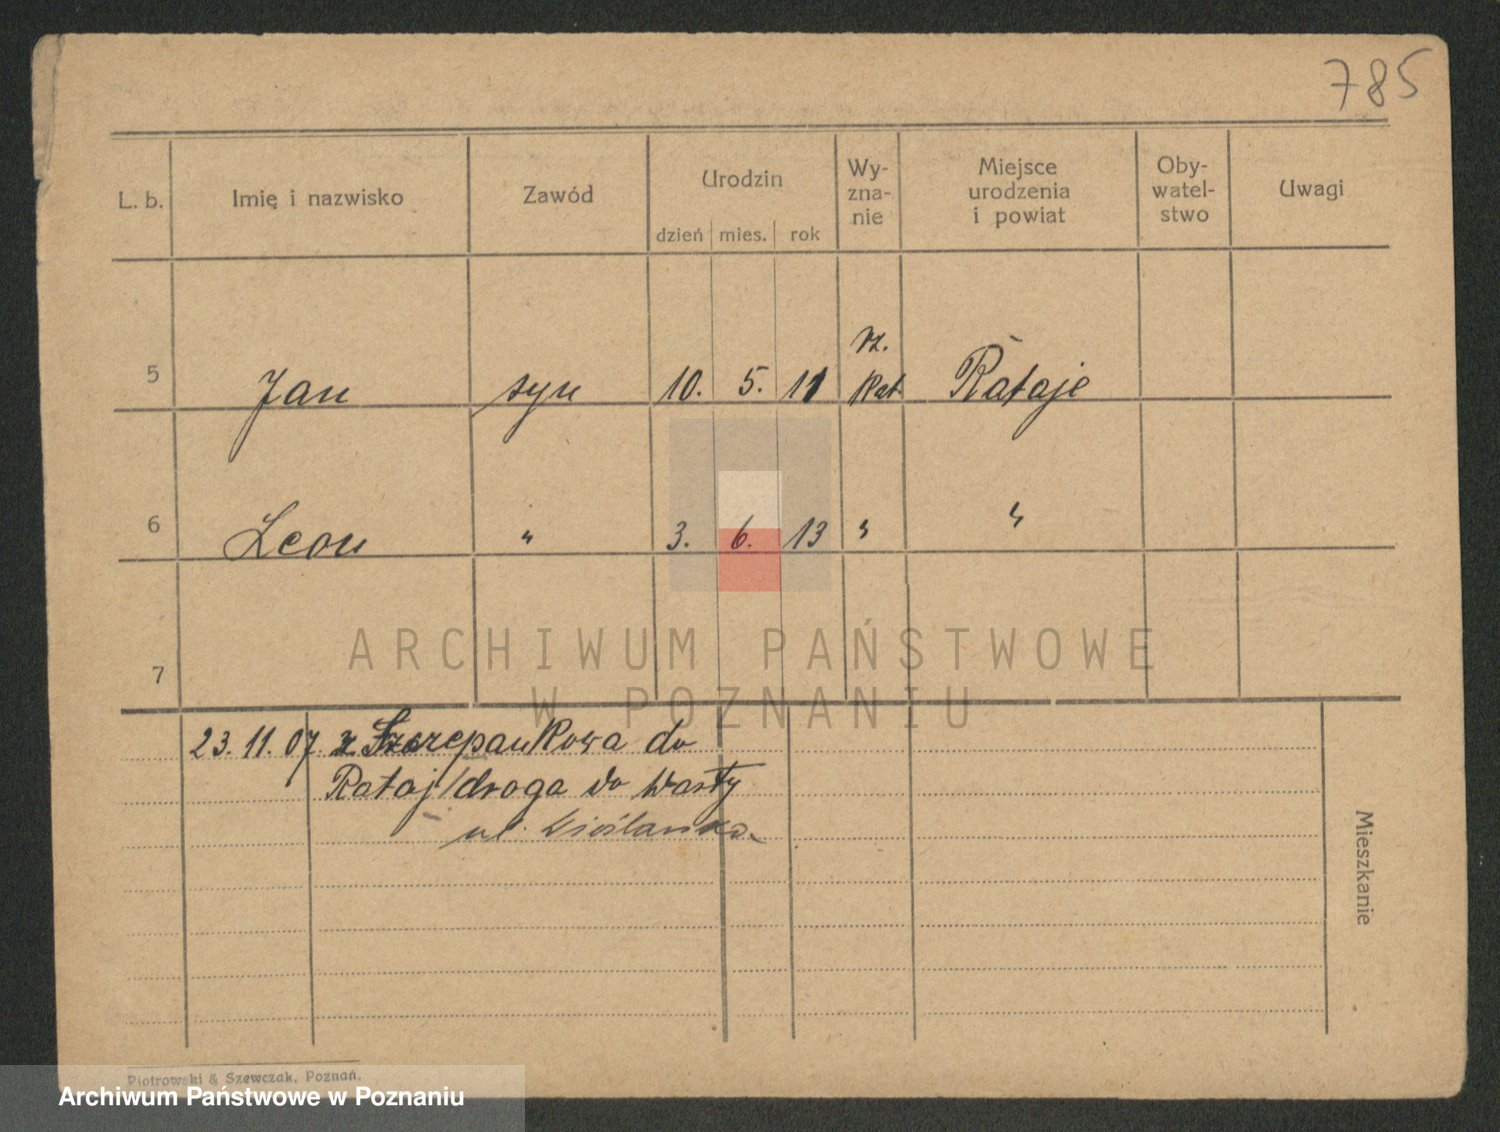 785
L. b. Imię i nazwisko Zawód Urodzin Wy-zna-nie Miejsce urodzenia i powiat Oby-watel-stwo Uwagi
dzień mies. rok
rz.
5 Jan syn 10. 5. 11 Kat. Rataje
6 Leon " 3. 6. 13 " "
7
ARCHIWUM PAŃSTWOWE
W POZNANIU
23. 11. 07 z Szczepankowa do
Rataj/droga do Warty
ul. Wioślarska
Mieszkanie
Piotrowski & Szewczak, Poznań.
Archiwum Państwowe w Poznaniu